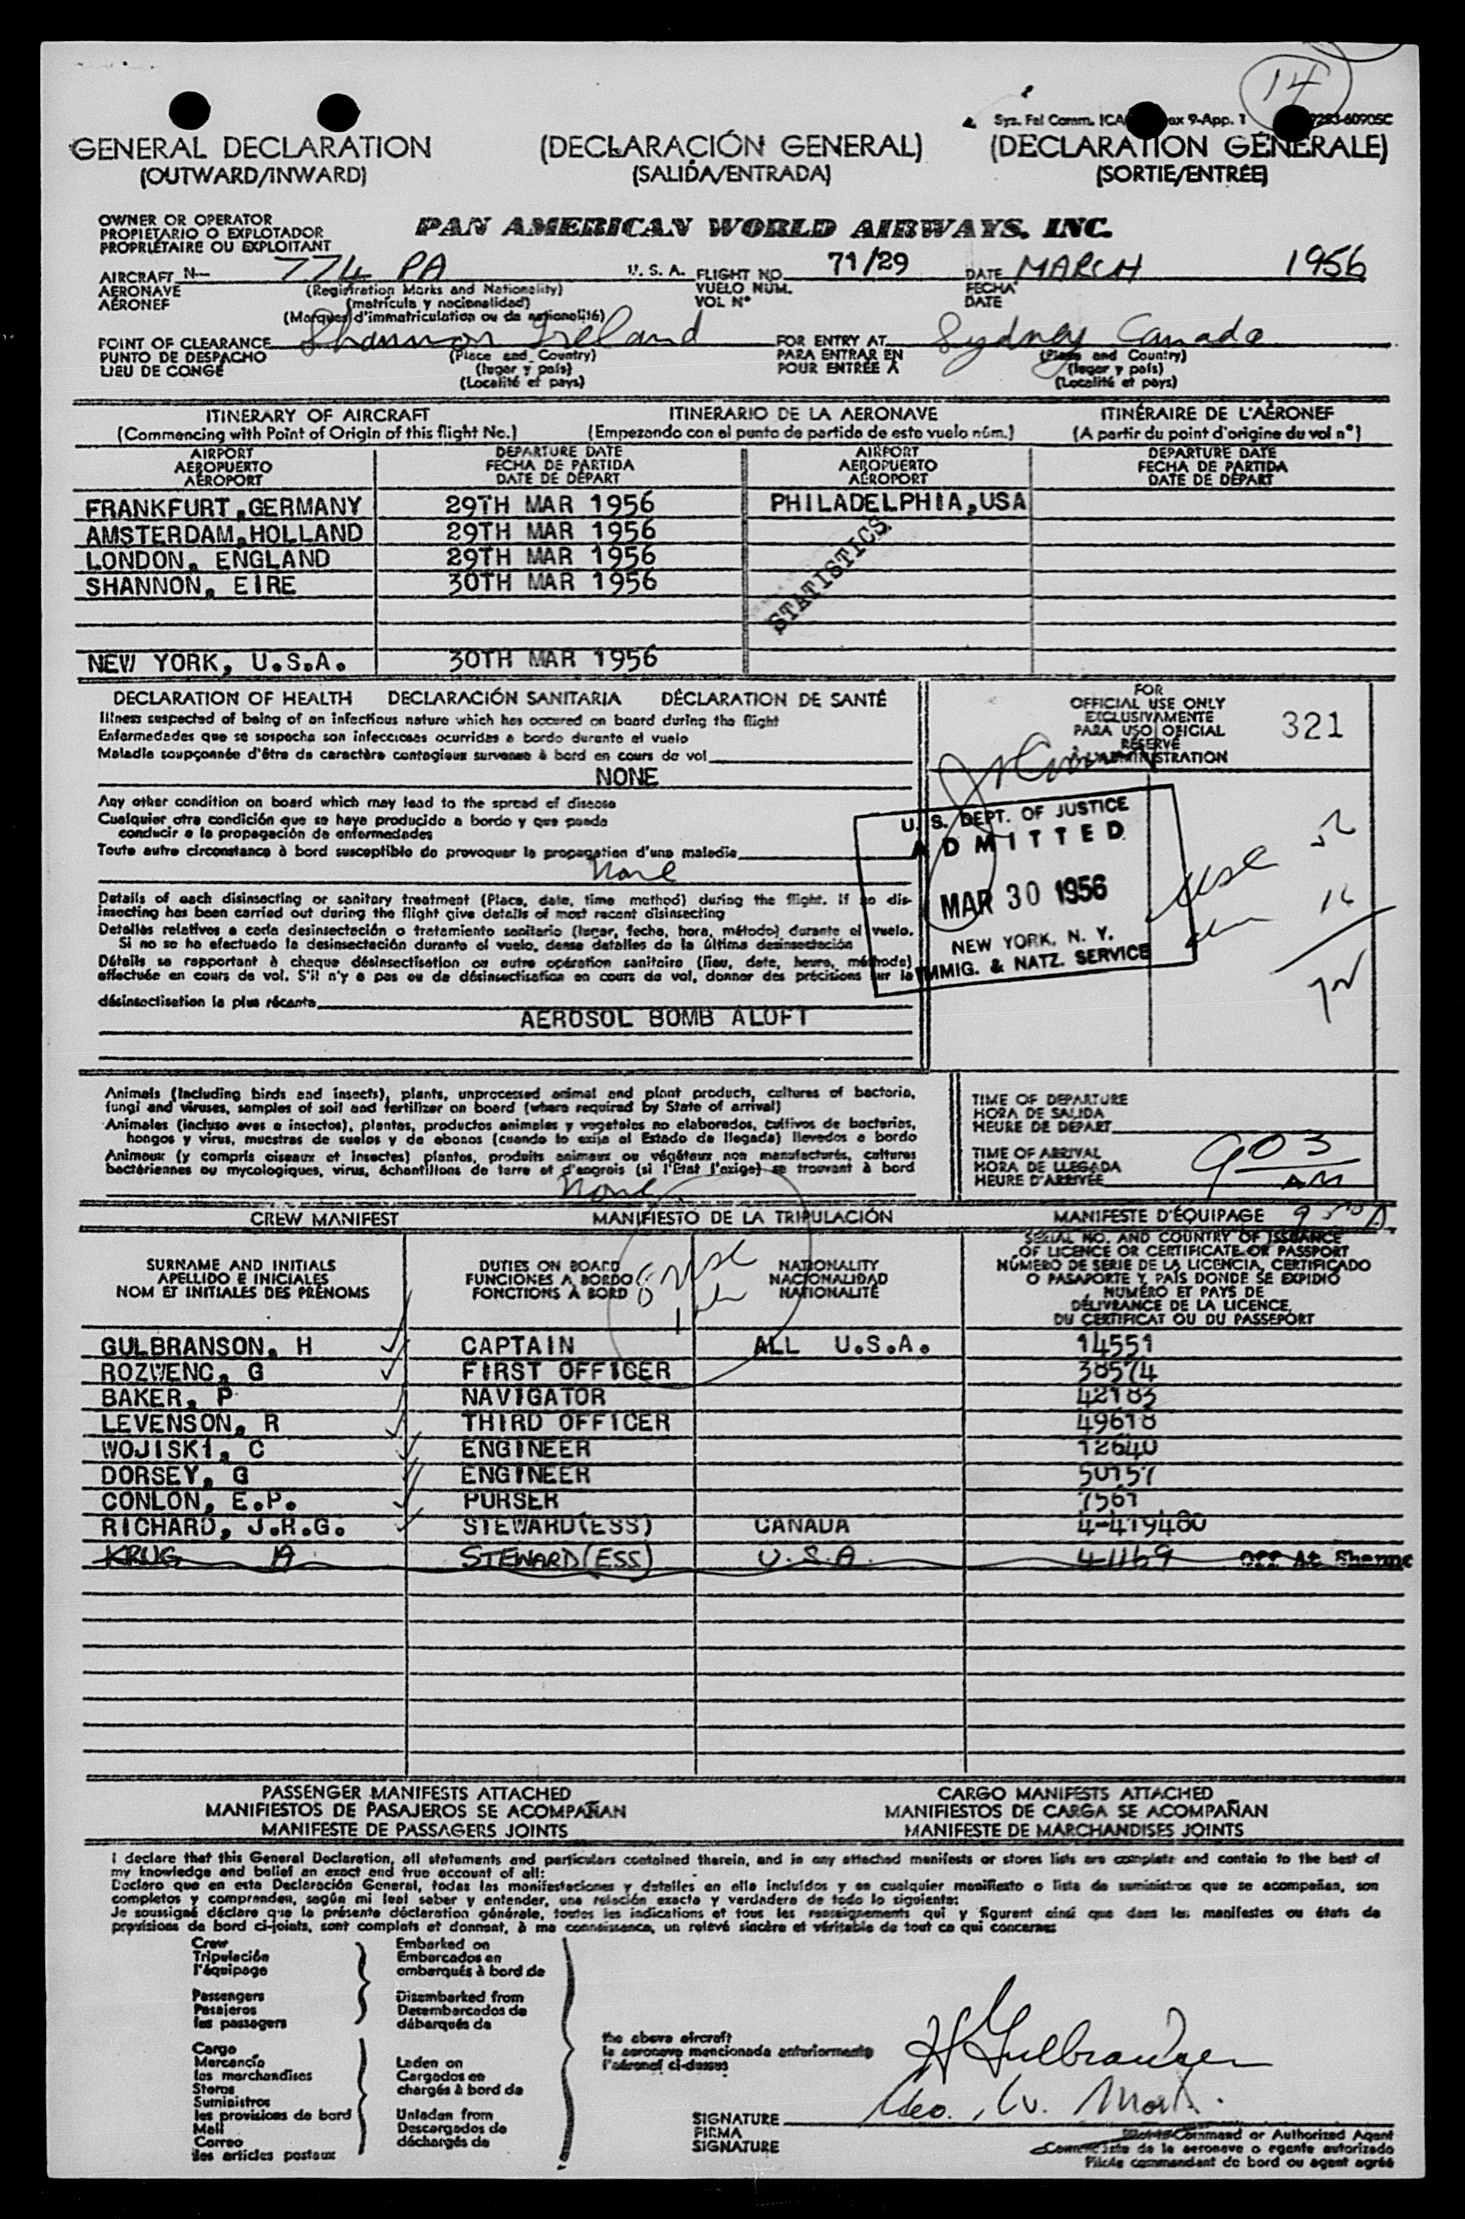 14
Syz. Fal Comm. ICA ex 9-App. 1 9293-60905C
GENERAL DECLARATION (DECLARACIÓN GENERAL) (DÉCLARATION GÉNÉRALE)
(OUTWARD/INWARD) (SALIDA/ENTRADA) (SORTIE/ENTRÉE)
OWNER OR OPERATOR
PROPIETARIO O EXPLOTADOR
PROPRIÉTAIRE OU EXPLOITANT
PAN AMERICAN WORLD AIRWAYS, INC.
AIRCRAFT N- 774 PA U. S. A. FLIGHT NO. 71/29 DATE MARCH 1956
AERONAVE (Registration Marks and Nationality) VUELO NUM. FECHA
AÉRONEF (matrícula y nacionalidad) VOL N° DATE
(Marques d'immatriculation ou de nationalité)
POINT OF CLEARANCE Shannon Ireland FOR ENTRY AT Sydney Canada
PUNTO DE DESPACHO (Place and Country) PARA ENTRAR EN (Place and Country)
LIEU DE CONGÉ (lugar y país) POUR ENTRÉE A (lugar y país)
(Localité et pays) (Localité et pays)
ITINERARY OF AIRCRAFT ITINERARIO DE LA AERONAVE ITINÉRAIRE DE L'AÉRONEF
(Commencing with Point of Origin of this flight No.) (Empezando con el punto de partida de este vuelo núm.) (A partir du point d'origine du vol n°)
AIRPORT DEPARTURE DATE AIRPORT DEPARTURE DATE
AEROPUERTO FECHA DE PARTIDA AEROPUERTO FECHA DE PARTIDA
AÉROPORT DATE DE DÉPART AÉROPORT DATE DE DÉPART
FRANKFURT,GERMANY 29TH MAR 1956 PHILADELPHIA,USA
AMSTERDAM,HOLLAND 29TH MAR 1956
LONDON, ENGLAND 29TH MAR 1956
SHANNON, EIRE 30TH MAR 1956
STATISTICS
NEW YORK, U.S.A. 30TH MAR 1956
DECLARATION OF HEALTH DECLARACIÓN SANITARIA DÉCLARATION DE SANTÉ
Illness suspected of being of an infectious nature which has occured on board during the flight
Enfermedades que se sospecha son infecciosas ocurridas a bordo durante el vuelo
Maladie soupçonnée d'être de caractère contagieux survenue à bord en cours de vol
NONE
Any other condition on board which may lead to the spread of disease
Cualquier otra condición que se haya producido a bordo y que pueda
conducir a la propagación de enfermedades
Toute autre circonstance à bord susceptible de provoquer la propagation d'une maladie
None
Details of each disinsecting or sanitary treatment (Place, date, time method) during the flight. If no dis-
insecting has been carried out during the flight give details of most recent disinsecting
Detalles relativos a cada desinsectación o tratamiento sanitario (lugar, fecha, hora, método) durante el vuelo.
Si no se ha efectuado la desinsectación durante el vuelo, dense detalles de la última desinsectación
Détails se rapportant à chaque désinsectisation ou autre opération sanitaire (lieu, date, heure, méthode)
effectuée en cours de vol. S'il n'y a pas eu de désinsectisation en cours de vol, donner des précisions sur la
désinsectisation la plus récente
AEROSOL BOMB ALOFT
FOR
OFFICIAL USE ONLY
EXCLUSIVAMENTE
PARA USO OFICIAL
RÉSERVÉ
À L'ADMINISTRATION
321
U. S. DEPT. OF JUSTICE
ADMITTED
MAR 30 1956
NEW YORK, N. Y.
IMMIG. & NATZ. SERVICE
Animals (including birds and insects), plants, unprocessed animal and plant products, cultures of bacteria,
fungi and viruses, samples of soil and fertilizer on board (where required by State of arrival)
Animales (incluso aves e insectos), plantas, productos animales y vegetales no elaborados, cultivos de bacterias,
hongos y virus, muestras de suelos y de abonos (cuando lo exija el Estado de llegada) llevados a bordo
Animaux (y compris oiseaux et insectes) plantes, produits animaux ou végétaux non manufacturés, cultures
bactériennes ou mycologiques, virus, échantillons de terre et d'engrais (si l'Etat l'exige) se trouvant à bord
None
TIME OF DEPARTURE
HORA DE SALIDA
HEURE DE DÉPART
TIME OF ARRIVAL
HORA DE LLEGADA
HEURE D'ARRIVÉE
903 AM
CREW MANIFEST MANIFIESTO DE LA TRIPULACIÓN MANIFESTE D'ÉQUIPAGE
SURNAME AND INITIALS
APELLIDO E INICIALES
NOM ET INITIALES DES PRÉNOMS
DUTIES ON BOARD
FUNCIONES A BORDO
FONCTIONS À BORD
NATIONALITY
NACIONALIDAD
NATIONALITÉ
SERIAL NO. AND COUNTRY OF ISSUANCE
OF LICENCE OR CERTIFICATE OR PASSPORT
NÚMERO DE SERIE DE LA LICENCIA, CERTIFICADO
O PASAPORTE Y PAÍS DONDE SE EXPIDIÓ
NUMÉRO ET PAYS DE
DÉLIVRANCE DE LA LICENCE,
DU CERTIFICAT OU DU PASSEPORT
GULBRANSON, H CAPTAIN ALL U.S.A. 14551
ROZWENC, G FIRST OFFICER 38574
BAKER, P NAVIGATOR 42183
LEVENSON, R THIRD OFFICER 49618
WOJISKI, C ENGINEER 12640
DORSEY, G ENGINEER 50157
CONLON, E.P. PURSER 7561
RICHARD, J.R.G. STEWARD(ESS) CANADA 4-419480
KRUG A STEWARD(ESS) U.S.A. 4-1169 OFF At Shannc
PASSENGER MANIFESTS ATTACHED CARGO MANIFESTS ATTACHED
MANIFIESTOS DE PASAJEROS SE ACOMPAÑAN MANIFIESTOS DE CARGA SE ACOMPAÑAN
MANIFESTE DE PASSAGERS JOINTS MANIFESTE DE MARCHANDISES JOINTS
I declare that this General Declaration, all statements and particulars contained therein, and in any attached manifests or stores lists are complete and contain to the best of
my knowledge and belief an exact and true account of all:
Declaro que en esta Declaración General, todas las manifestaciones y detalles en ella incluídos y en cualquier manifiesto o lista de suministros que se acompañan, son
completos y comprenden, según mi leal saber y entender, una relación exacta y verdadera de todo lo siguiente:
Je soussigné déclare que la présente déclaration générale, toutes les indications et tous les renseignements qui y figurent ainsi que dans les manifestes ou états de
provisions de bord ci-joints, sont complets et donnent, à ma connaissance, un relevé sincère et véritable de tout ce qui concerne:
Crew Embarked on
Tripulación Embarcados en
l'équipage embarqués à bord de
Passengers Disembarked from
Pasajeros Desembarcados de
les passagers débarqués de
Cargo
Mercancía Laden on
les marchandises Cargados en
Stores chargés à bord de
Suministros
les provisions de bord Unladen from
Mail Descargados de
Correo déchargés de
les articles postaux
the above aircraft
la aeronave mencionada anteriormente
l'aéronef ci-dessus
H Gulbransen
Geo. W. Mork.
SIGNATURE
FIRMA
SIGNATURE
Pilot-in-Command or Authorized Agent
Comandante de la aeronave o agente autorizado
Pilote commandant de bord ou agent agréé